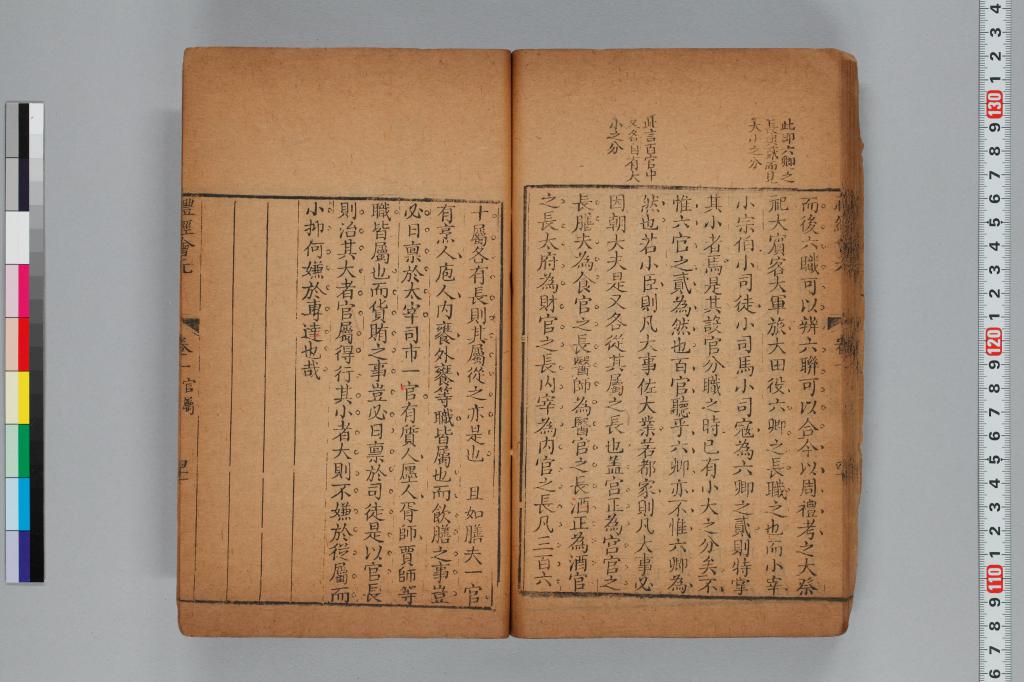 此即六卿之
大小之分
此言百官中
又各自有大
小之分
而後六職可以辨六聯可以合今以周禮考之大祭
祀大賓客大軍旅大田役六卿之長職之也而小宰
小宗伯小司徒小司馬小司寇為六卿之貳則特掌
其小者焉是其設官分職之時已有小大之分矣不
惟六官之貳為然也百官聽乎六卿亦不惟六卿為
然也若小臣則凡大事佐大業若都家則凡大事必
因朝大夫是又各從其屬之長也蓋宮正為宮官之
長膳夫為食官之長醫師為醫官之長酒正為酒官
之長太府為財官之長內宰為內官之長凡三百六
十屬各有長則其屬從之亦是也 且如膳夫一官
有烹人庖人內饔外饔等職皆屬也而飲膳之事豈
必日禀於太宰司市一官有質人廛人胥師賈師等
職皆屬也而貨賄之事豈必日禀於司徒是以官長
則治其大者官屬得行其小者大則不嫌於從屬而
小抑何嫌於專達也哉
禮經會元
卷一 官屬